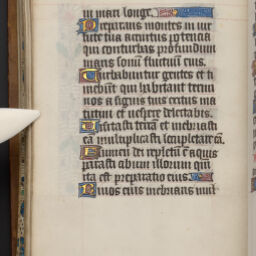 in mari longe.
Preparans montes in vir
tute tua accinctus potencia
qui conturbas profundum
maris sonum fluctuum eius.
Turbabuntur gentes et ti
mebunt qui habitant termi
nos a signis tuis exitus ma
tutini et vespere delectabis.
Visitasti terram et inebriasti
eam multiplicasti locupletare eam.
Flumen dei repletum est aquis
parasti cibum illorum quoniam
ita est preparatio eius.
Rivos eius inebrians mul